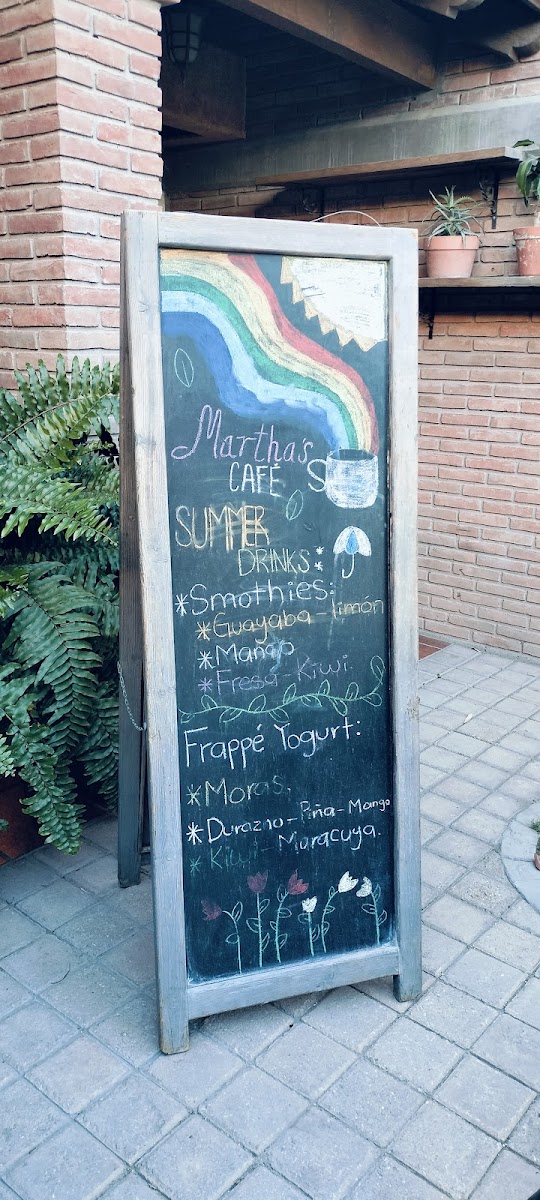 Martha's
CAFÉ
SUMMER
DRINKS:
*Smothies:
*Guayaba-limón
*Mango
*Fresa-Kiwi.
Frappé Yogurt:
*Moras.
*Durazno-Piña-Mango
*Kiwi-Maracuya.